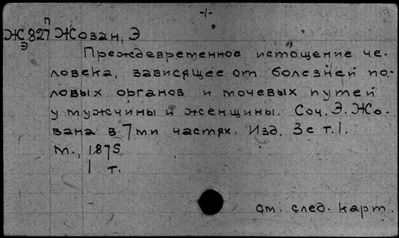 -1-
П
Ж 827 Жозан, Э
Э
Преждевременное истощение че-
ловека, зависящее от болезней по-
ловых органов и мочевых путей
у мужчины и женщины. Соч. Э. Жо-
зана в 7ми частях. Изд. 3е т. 1.
М., 1875
1 т.
см. след. карт.